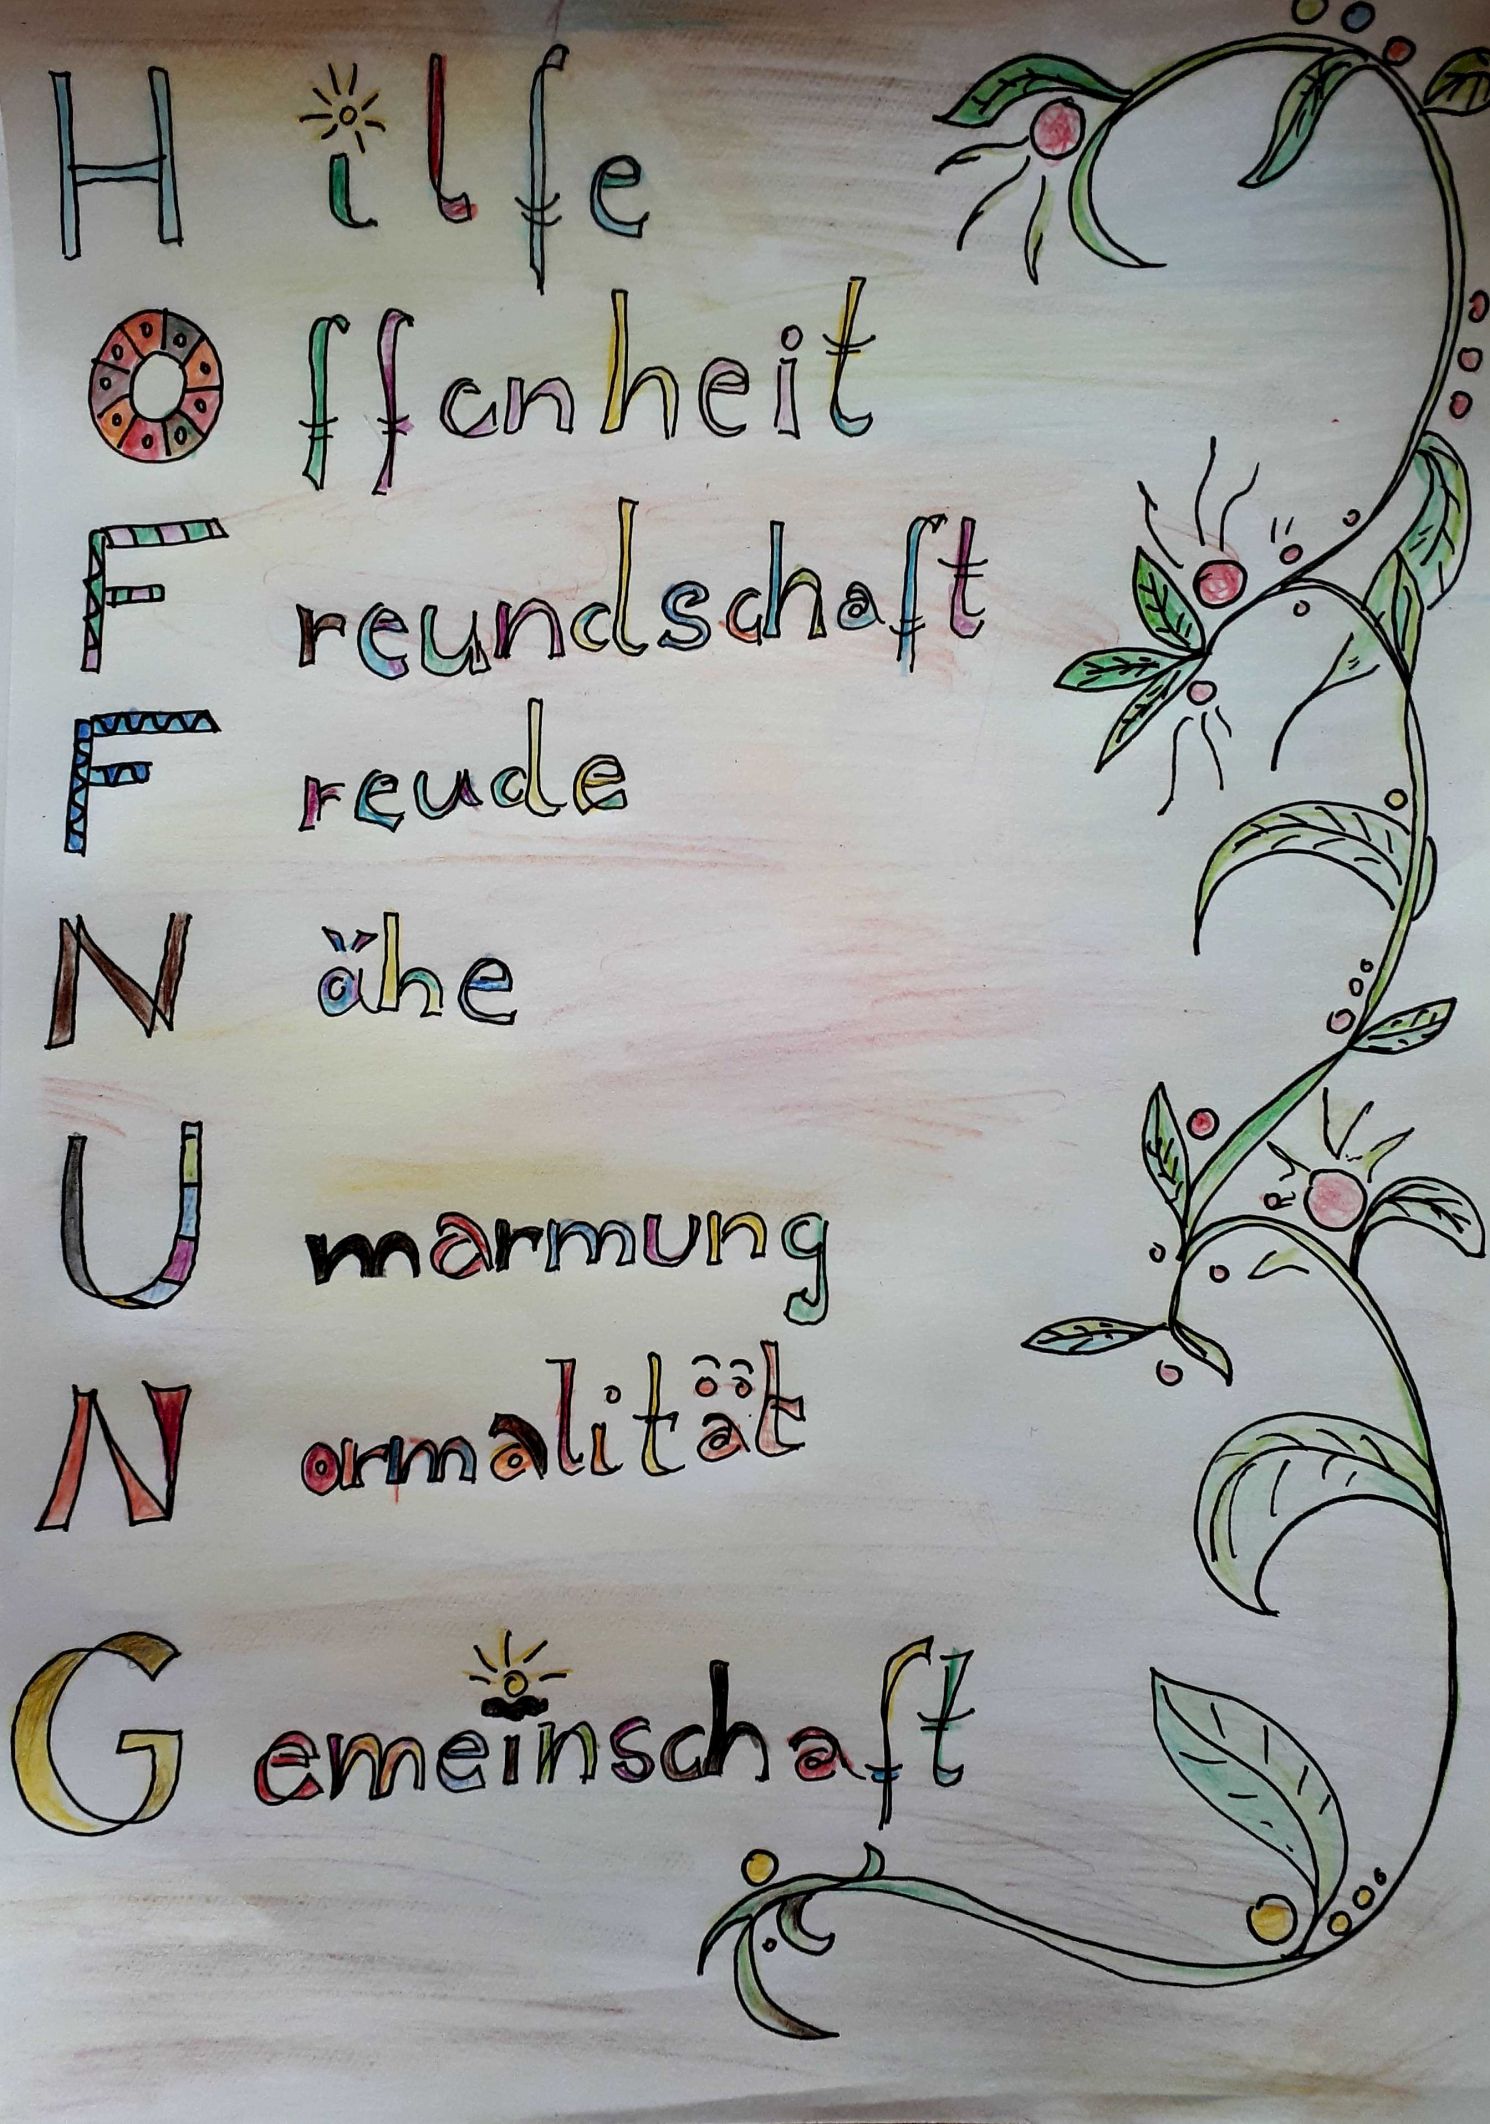 Hilfe
Offenheit
Freundschaft
Freude
Nähe
Umarmung
Normalität
Gemeinschaft